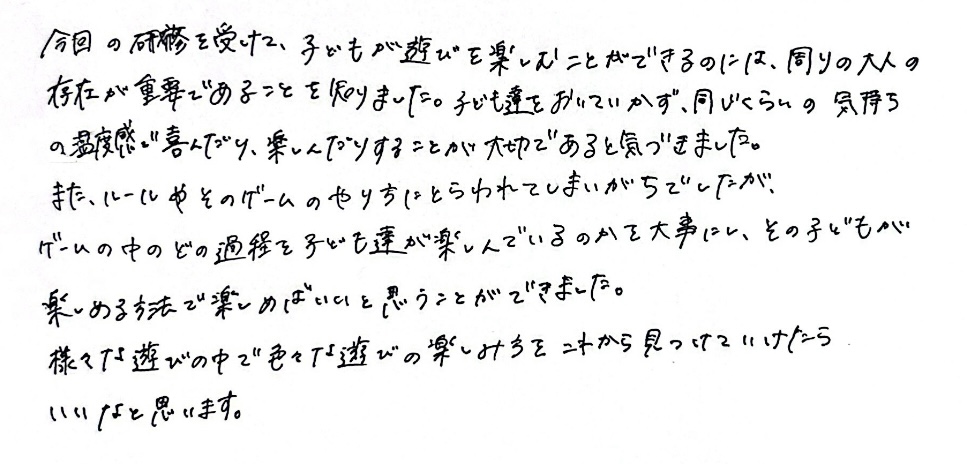 今回の研修を受けて、子どもが遊びを楽しむことができるのには、周りの大人の
存在が重要であることを知りました。子ども達をおいていかず、同じくらいの気持ち
の温度感で喜んだり、楽しんだりすることが大切であると気づきました。
また、ルールやそのゲームのやり方にとらわれてしまいがちでしたが、
ゲームの中のどの過程を子ども達が楽しんでいるのかを大事にし、その子どもが
楽しめる方法で楽しめばいいと思うことができました。
様々な遊びの中で色々な遊びの楽しみ方をこれから見つけていけたら
いいなと思います。